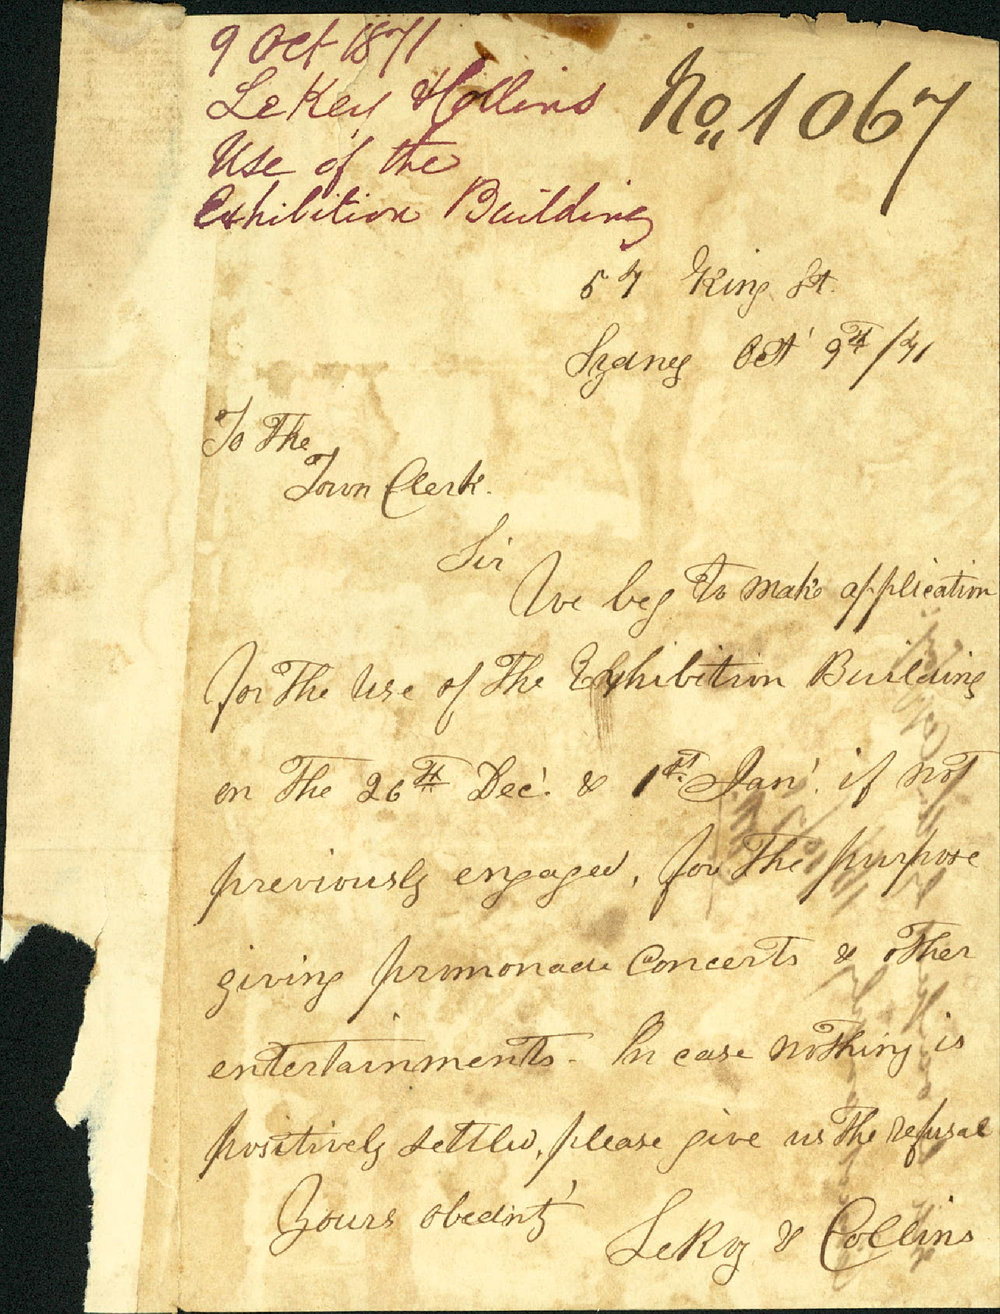 9 Oct 1871
LeKey & Hollins
Use of the
Exhibition Building
No. 1067
57 King St.
Sydney Oct' 9th /71
To The
Town Clerk.
Sir
We beg to make application
for The use of The Exhibition Building
on The 26th Dec'. & 1st. Jan'. if not
previously engaged, for The purpose
giving promonade Concerts & other
entertainments. In case nothing is
positively settled, please give us The refusal
Yours obedintly'
LeRoy & Collins